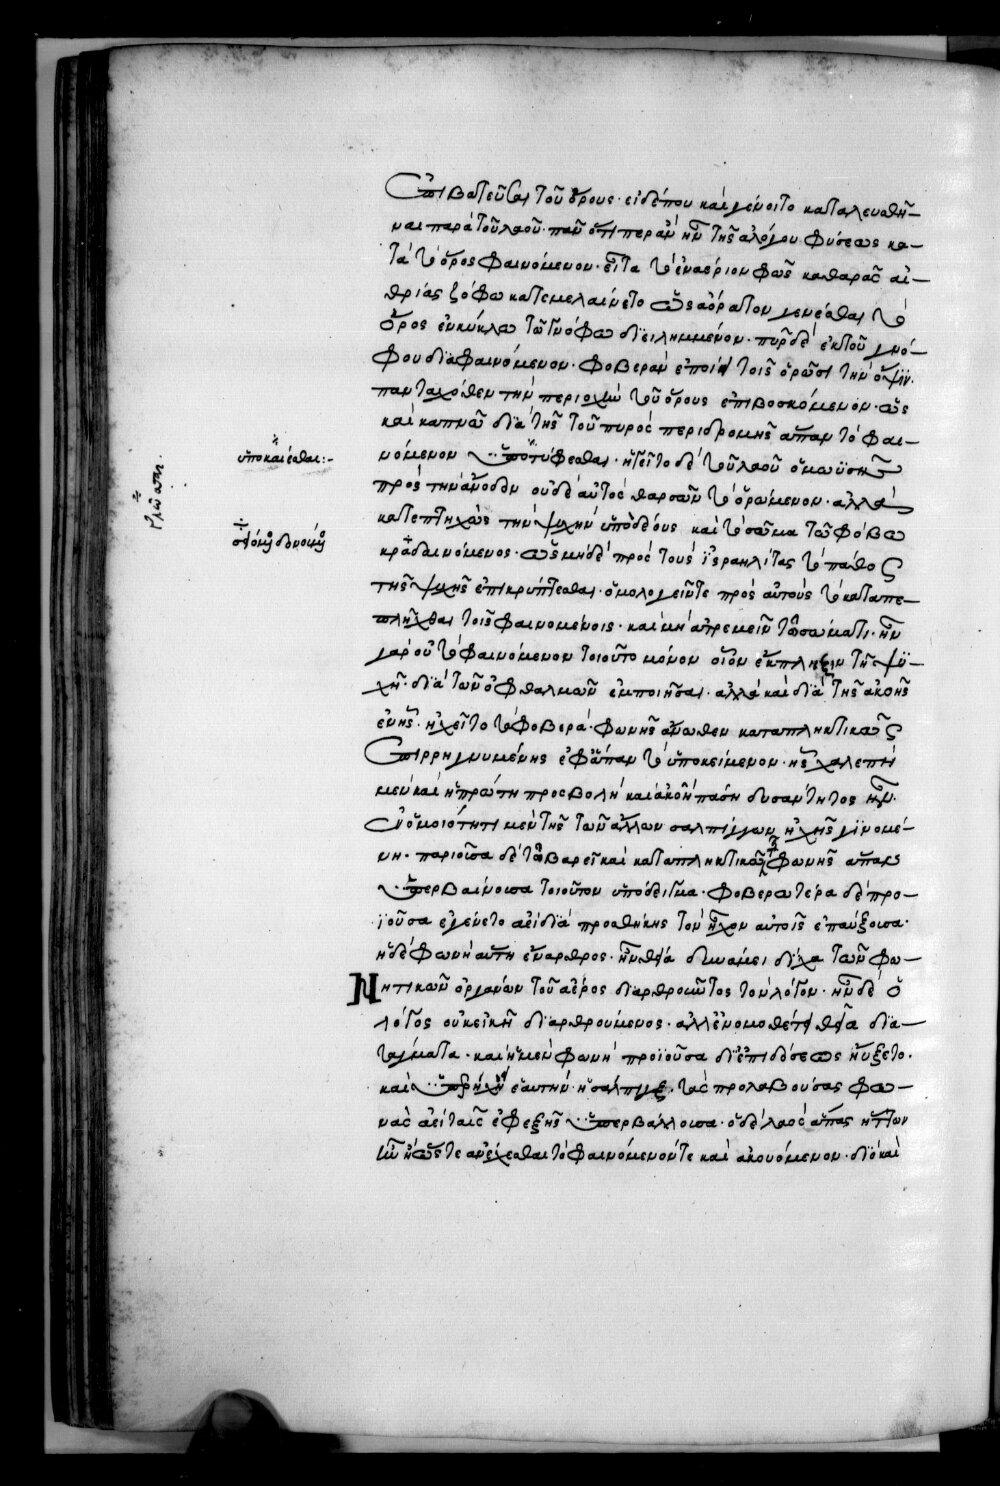 ἐπιβατεῦσαι τοῦ ὄρους· εἰ δέ που καὶ γένοιτο καταλευσθῆ-
ναι παρὰ τοῦ λαοῦ· πᾶν ὅτιπερ ἂν ἦν τῆς ἀλόγου φύσεως κα-
τὰ τὸ ὄρος φαινόμενον· εἶτα τὸ ἐναέριον φῶς καθαρᾶς αἰ-
θρίας ζόφω κατεμελαίνετο ὡς ἀόρατον γενέσθαι τὸ
ὄρος ἐν κύκλω τῶ γνόφω διειλημμένον· πῦρ δὲ ἐκ τοῦ γνό-
φου διαφαινόμενον· φοβερὰν ἐποίει τοῖς ὁρῶσι τὴν ὄψιν·
πανταχόθεν τὴν περιοχὴν τοῦ ὄρους ἐπιβοσκόμενον· ὡς
καὶ καπνῶ διὰ τῆς τοῦ πυρὸς περιδρομῆς ἅπαν τὸ φαι-
νόμενον ὑποτύφεσθαι· ἡγεῖτο δὲ τοῦ λαοῦ ὁ μωϋσῆς
πρὸς τὴν ἄνοδον οὐδὲ αὐτὸς θαρσῶν τὸ ὁρώμενον· ἀλλὰ
κατεπτηχὼς τὴν ψυχὴν ὑπὸ δέους καὶ τὸ σῶμα τῶ φόβω
κραδαινόμενος· ὡς μηδὲ πρὸς τοὺς ἰσραηλίτας τὸ πάθος
τῆς ψυχῆς ἐπικρύπτεσθαι· ὁμολογεῖν τε πρὸς αὐτοὺς τὸ καταπε-
πλῆχθαι τοῖς φαινομένοις· καὶ μὴ ἀτρεμεῖν τῶ σώματι· ἦν
γὰρ οὐ τὸ φαινόμενον τοιοῦτο μόνον οἷον ἔκπληξιν τῆ ψυ-
χῆ· διὰ τῶν ὀφθαλμῶν ἐμποιῆσαι· ἀλλὰ καὶ διὰ τῆς ἀκοῆς
φοβερὰ· φωνῆς ἄνωθεν καταπληκτικῶς
ἐπιρρηγνυμένης ἐφ' ἅπαν τὸ ὑποκείμενον· ἧς χαλεπὴ
μὲν καὶ ἡ πρώτη προσβολὴ καὶ ἀκοῆ πάση δυσάντητος ἦν·
ἐν ὁμοιότητι μὲν τῆς τῶν ἄλλων σαλπίγγων ἠχῆς γινομέ-
νη· παριοῦσα δὲ τῶ βαρεῖ καὶ καταπληκτικῶ τῆς φωνῆς ἅπαν
ὑπερβαίνουσα τοιοῦτον ὑπόδειγμα· φοβερωτέρα δὲ προ-
ϊοῦσα ἐγένετο ἀεὶ διὰ προσθήκης τὸν ἦχον αὐτοῖς ἐπαύξουσα·
ἡ δὲ φωνὴ αὕτη ἔναρθρος· ἦν θεία δυνάμει δίχα τῶν φω-
νητικῶν ὀργάνων τοῦ ἀέρος διαρθροῦντος τὸν λόγον· ἦν δὲ ὁ
λόγος οὐκ εἰκῆ διαρθρούμενος· ἀλλ' ἐνομοθέτει θεῖα δια-
τάγματα· καὶ ἡ μὲν φωνὴ προϊοῦσα δι' ἐπιδόσεως ηὔξετο·
καὶ ὑπερήχει ἑαυτὴν ἡ σάλπιγξ, τὰς προλαβούσας φω-
νὰς ἀεὶ ταῖς ἐφεξῆς ὑπερβάλλουσα· ὁ δὲ λαὸς ἅπας ἥττων
ἦν ἢ ὥστε ἀνέχεσθαι τὸ φαινόμενόν τε καὶ ἀκουόμενον· διὸ καὶ
ὑποκαίεσθαι:-